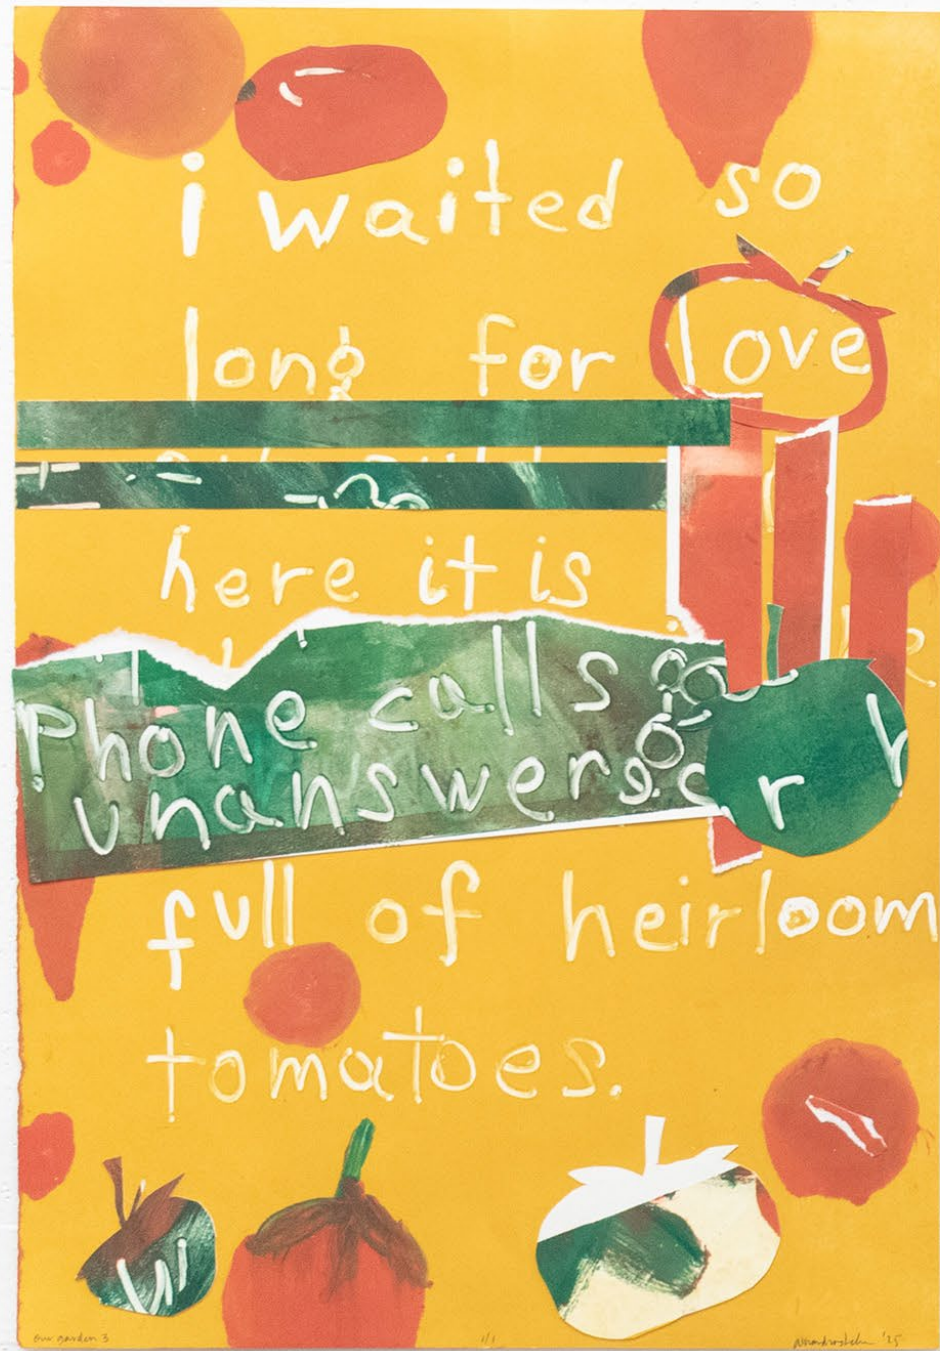 i waited so
long for love
here it is
Phone calls go
unanswered
full of heirloom
tomatoes.
our garden 3
1/1
'25